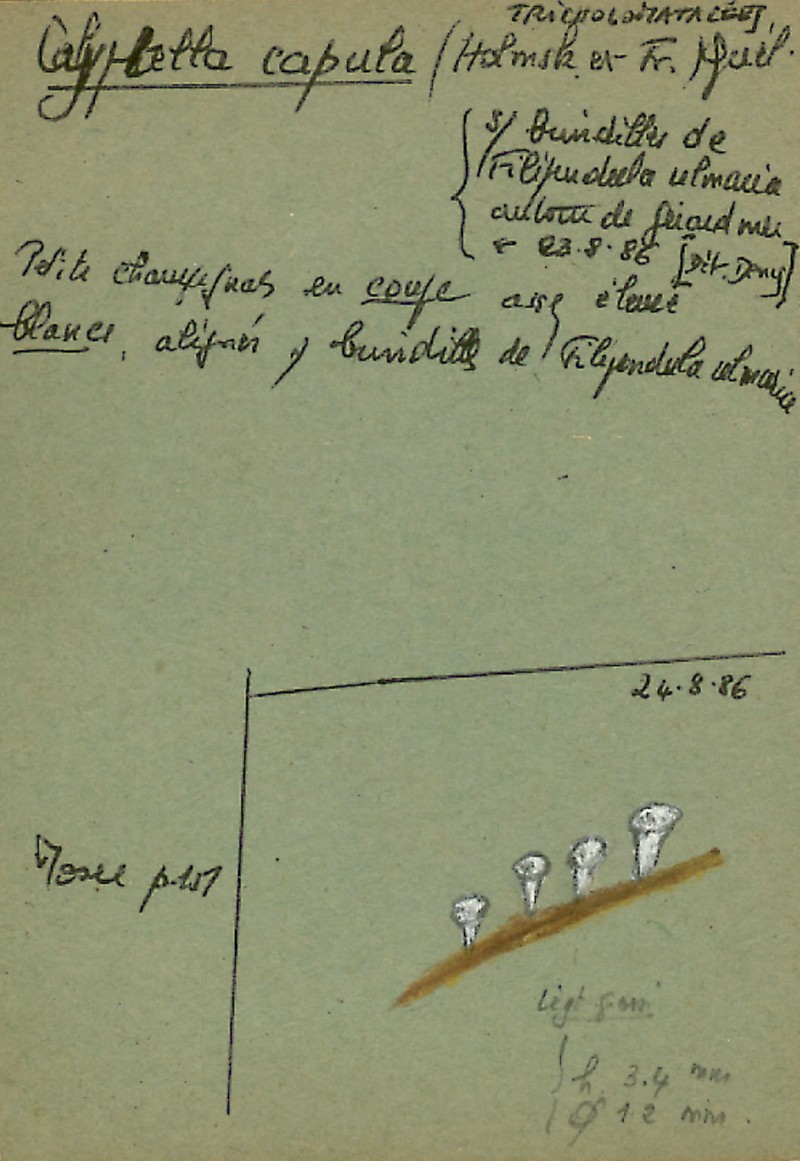 TRICHOLOMATACÉES,
Calyptella capula (Holmsk ex Fr.) Quél.
s/ brindilles de
Filipendula ulmaria
autour de Gérardmer
23.8.86 [Dét. Deny]
Petits champignons en coupe assez élevée
blancs, alignés s/ brindilles de Filipendula ulmaria
24.8.86
Moser p.101
Légt grossi
h 3.4 mm
Ø 1 2 mm.